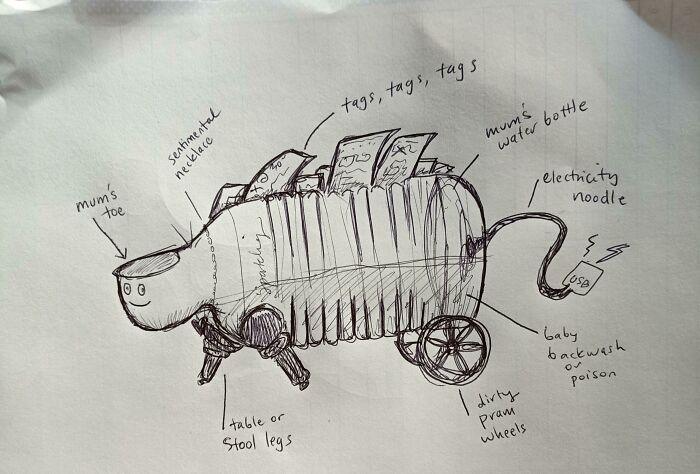 tags, tags, tags
sentimental
necklace
mum's
water bottle
mum's
toe
electricity
noodle
USB
baby
backwash
or
poison
table or
stool legs
dirty
pram
wheels